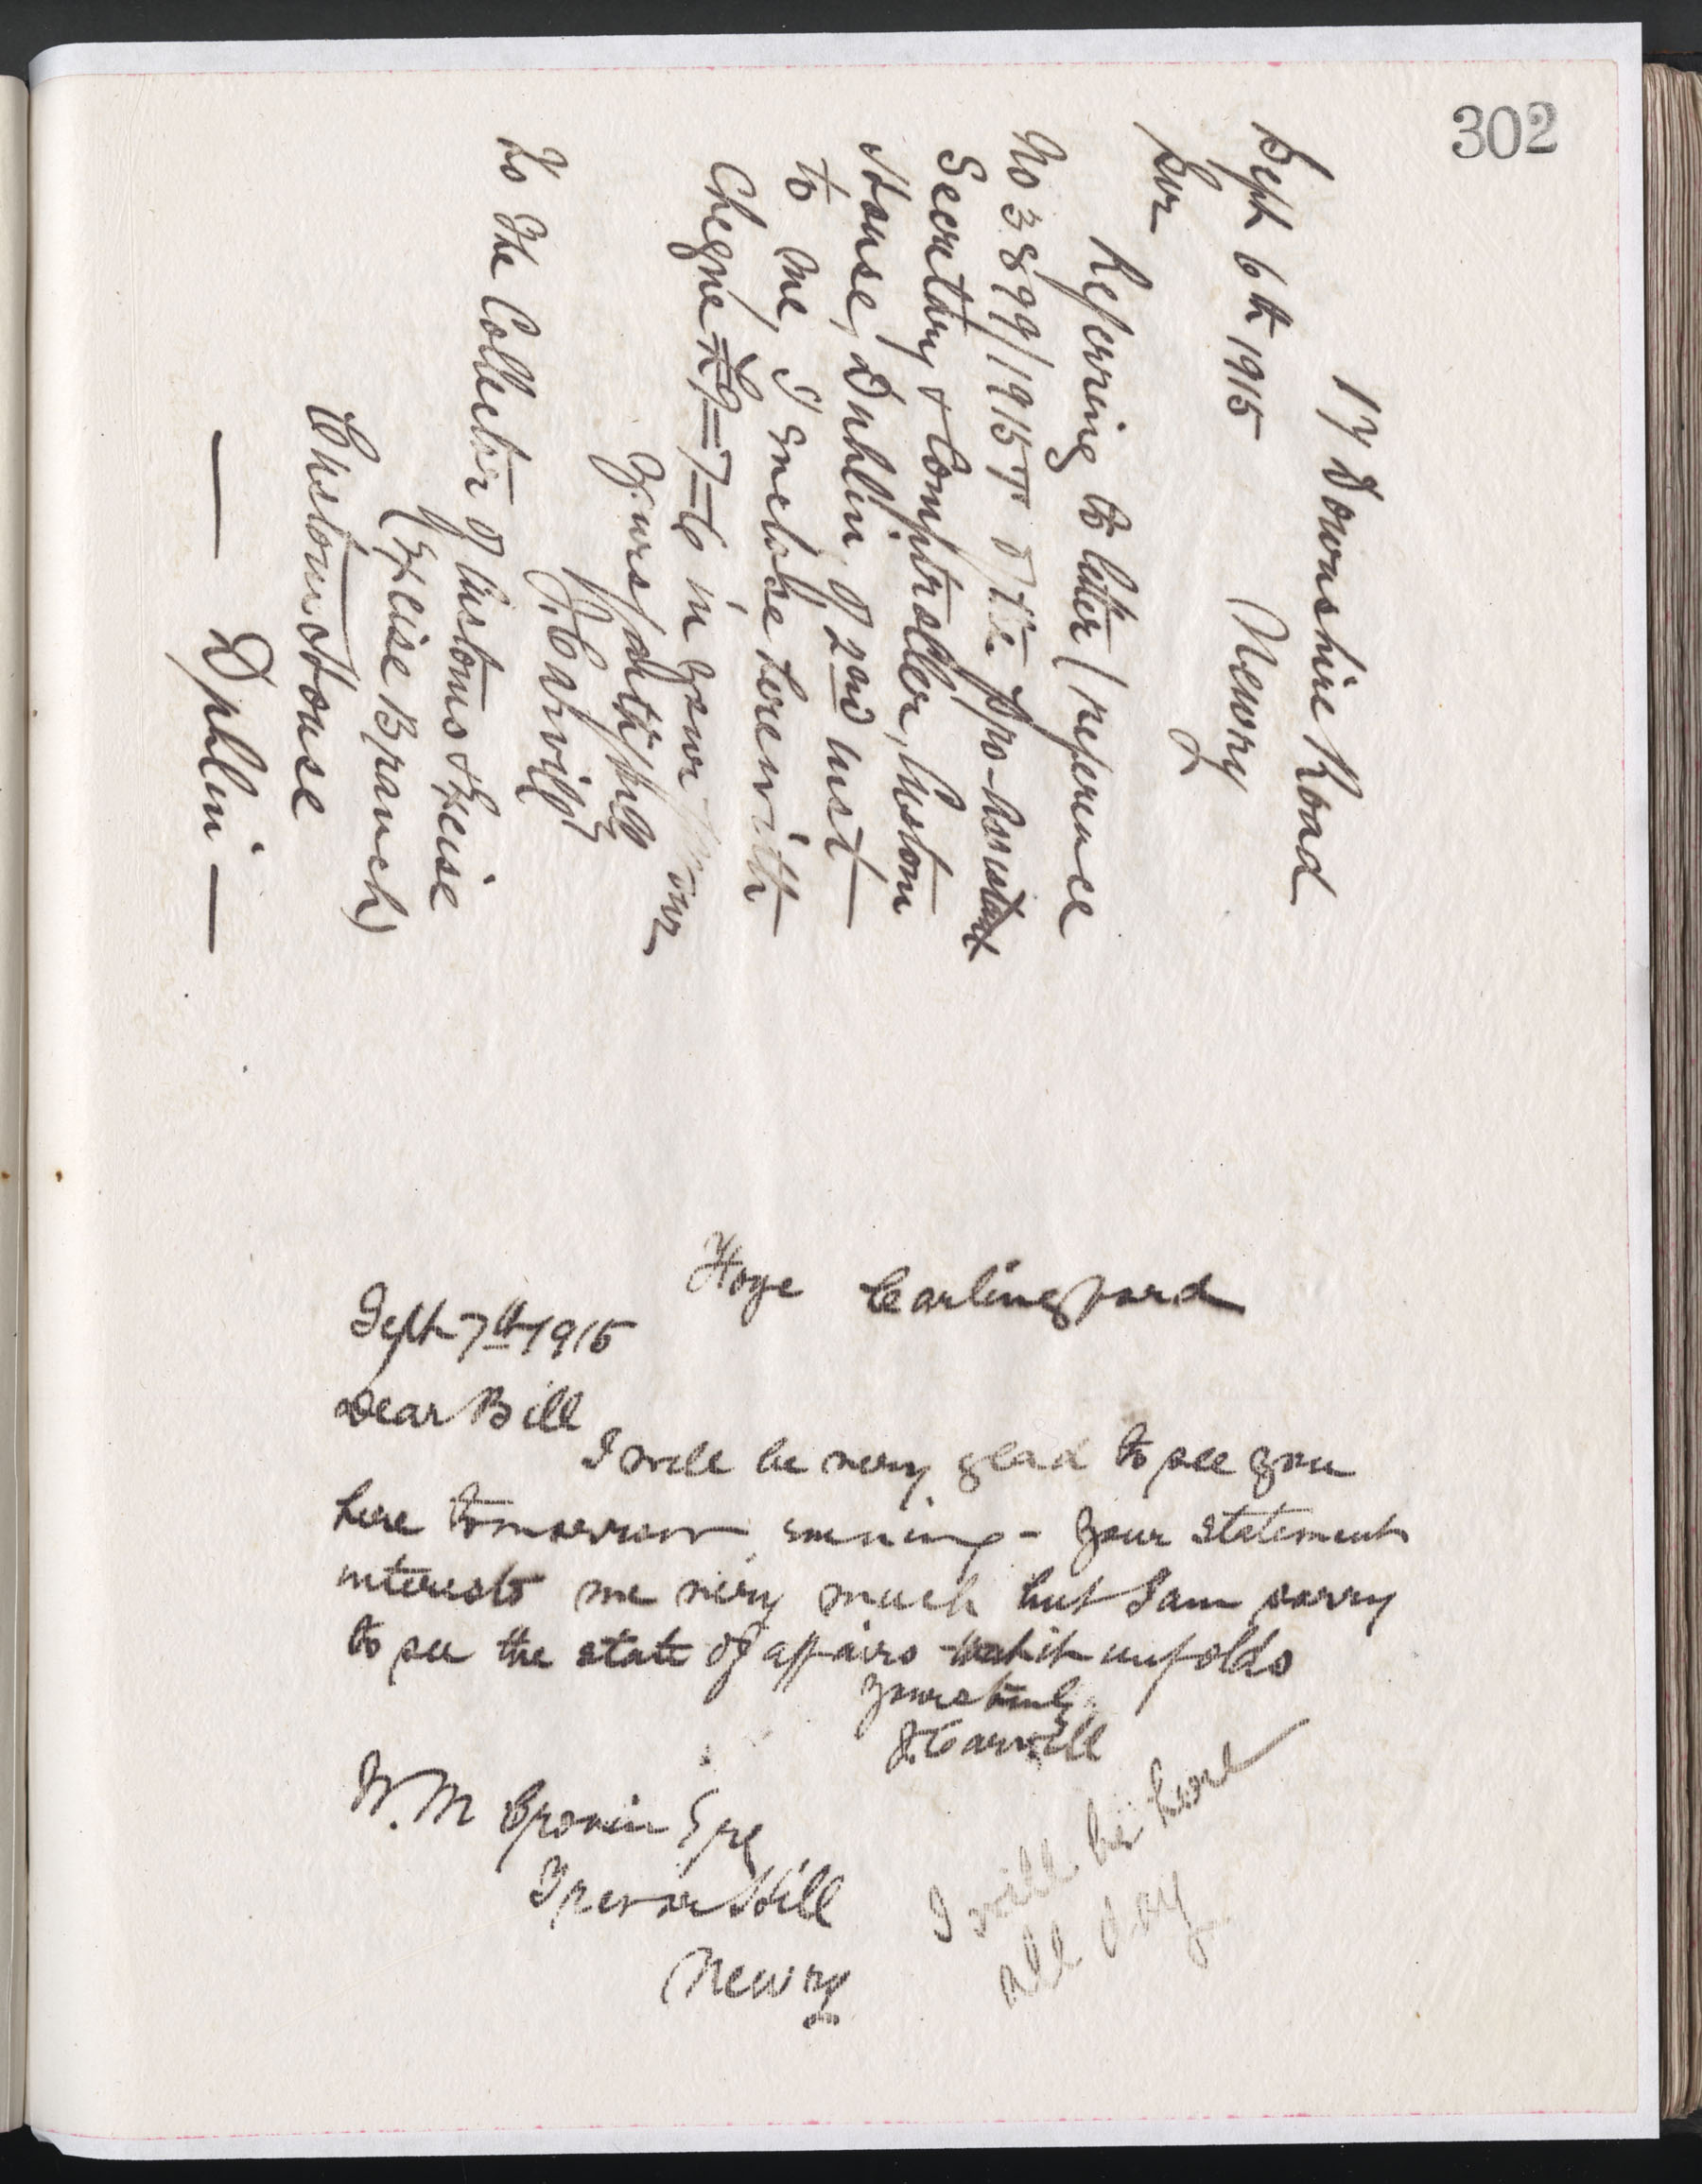 302
17 Downshire Road
Newry
Sept 6th 1915
Sir
Referring to letter (reference
No 3899/1915 T of the pro-Assistant
Secretary & Comptroller, Custom
House, Dublin of 2nd inst
to me, I Enclose herewith
Cheque £9=7=6 in your favour
Yours faithfully
J. Carvill
To The Collector of Customs & Excise
(Excise Branch)
Custom House
— Dublin —
Carlingford
Sept 7th 1915
Dear Bill
I will be very glad to see you
here tomorrow evening - your statement
interests me very much but I am sorry
to see the state of affairs which unfolds
yours truly
J. Carvill
I will be here
all day
W. M Cronin Esqe
Trevor Hill
Newry